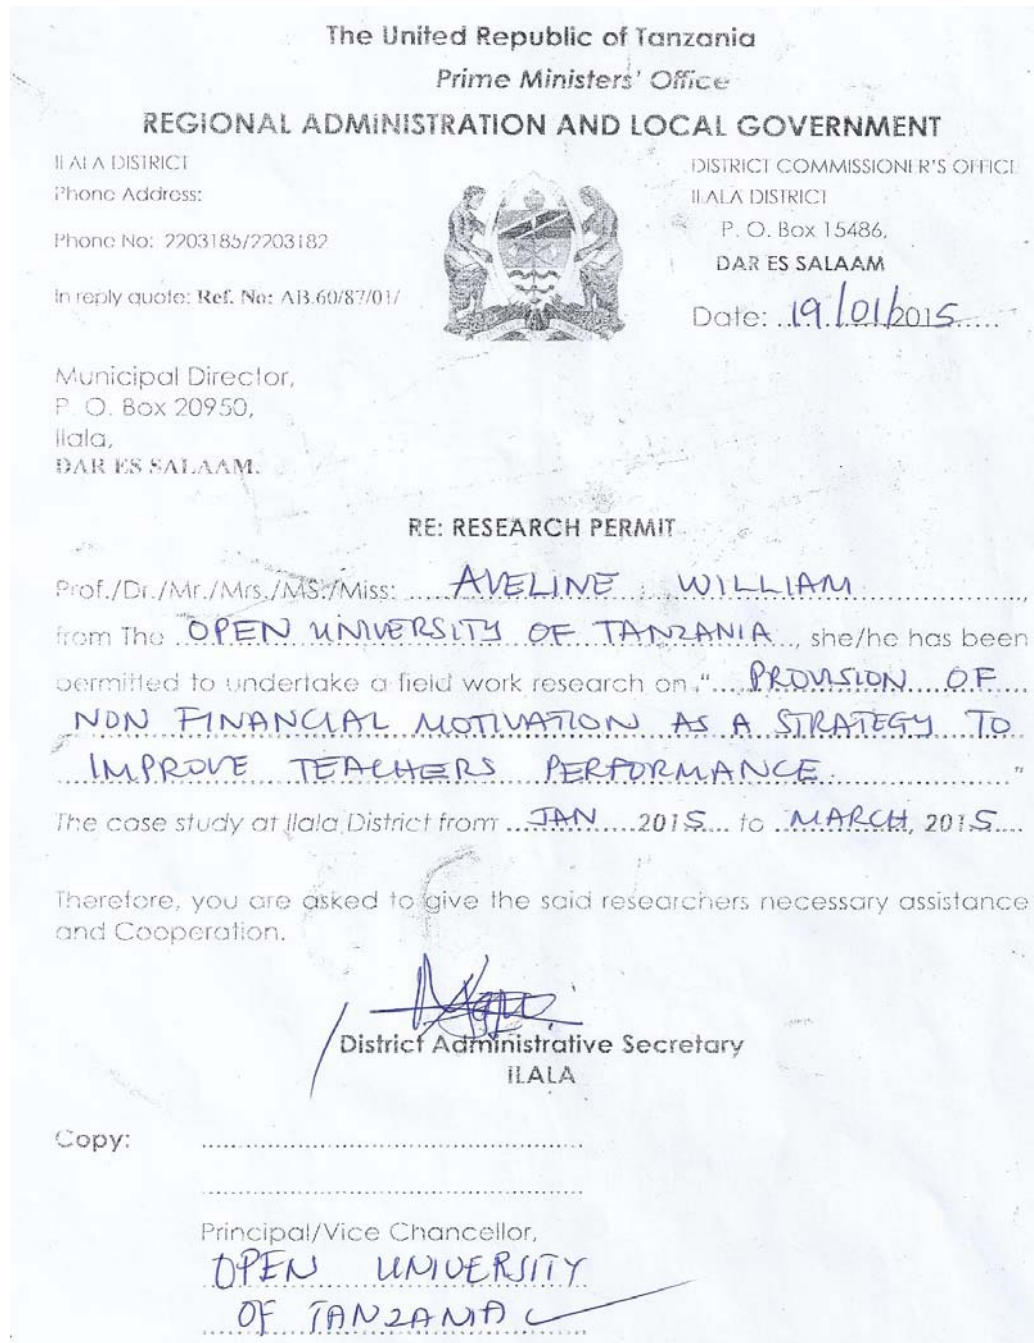 The United Republic of Tanzania
Prime Ministers' Office
REGIONAL ADMINISTRATION AND LOCAL GOVERNMENT
ILALA DISTRICT
Phone Address:
Phone No: 2203185/2203182
In reply quote: Ref. No: AB.60/87/01/
DISTRICT COMMISSIONER'S OFFICE
ILALA DISTRICT
P. O. Box 15486,
DAR ES SALAAM
Date: ..19/01/2015.....
Municipal Director,
P. O. Box 20950,
Ilala,
DAR ES SALAAM.
RE: RESEARCH PERMIT
Prof./Dr./Mr./Mrs./MS./Miss: AVELINE WILLIAM,
from The OPEN UNIVERSITY OF TANZANIA, she/he has been
permitted to undertake a field work research on "PROVISION OF
NON FINANCIAL MOTIVATION AS A STRATEGY TO
IMPROVE TEACHERS PERFORMANCE"
The case study at Ilala District from JAN 2015 to MARCH, 2015
Therefore, you are asked to give the said researchers necessary assistance
and Cooperation.
District Administrative Secretary
ILALA
Copy:
Principal/Vice Chancellor,
OPEN UNIVERSITY
OF TANZANIA